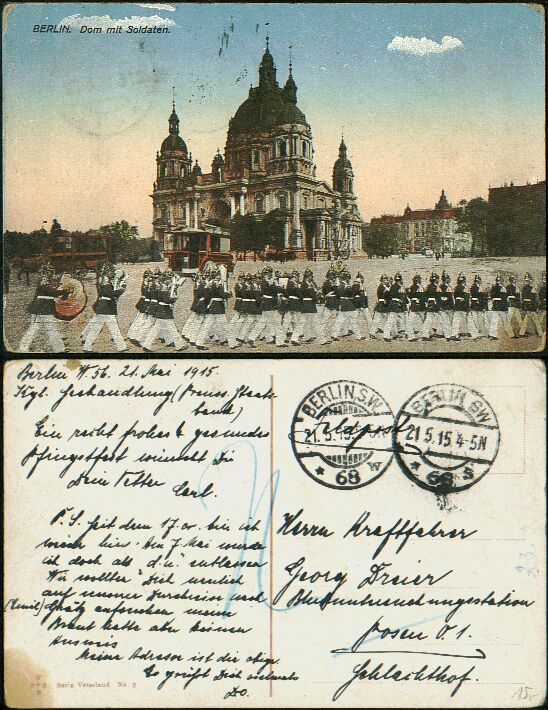 BERLIN. Dom mit Soldaten.
Berlin W.56. 21. Mai 1915
Kgl. Seehandlung (Preuss. Staats-
bank)
Ein recht frohes & gesundes
Pfingstfest wünscht Dir
Dein Vetter
Carl.
P.S. Seit dem 17. or. bin ich
wieder hier. Am 7. Mai wurde
ich doch als "d.u." entlassen
Wir wollten Dich neulich
auf unserer Durchreise nach
(Emil) Grätz aufsuchen meine
Braut hatte aber keinen
Ausweis
Meine Adresse ist die obige.
Es grüßt Dich vielmals
Do.
Serie Vaterland No. 3
BERLIN S.W.
21.5.15
* 68 w
Feldpost
BERLIN SW
21.5.15 4-5N
* 68 s
Herrn Kraftfahrer
Georg Dreier
Blutuntersuchungsstation
Posen O.1.
Schlachthof.
15,-